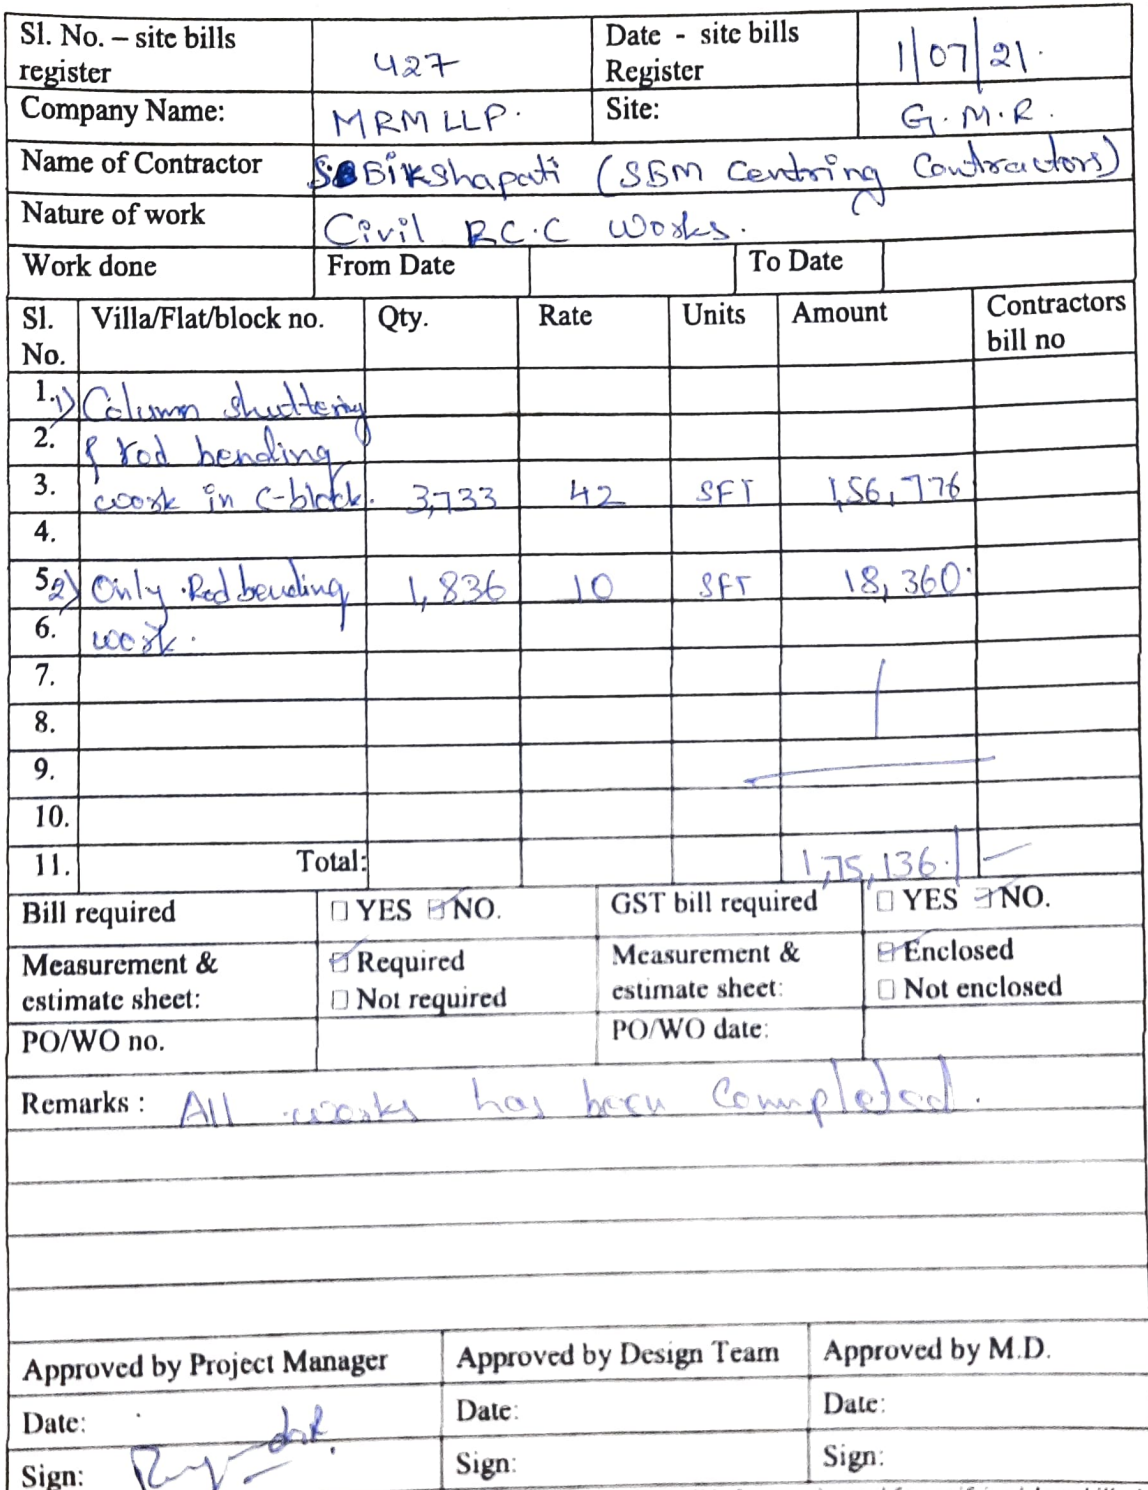 Sl. No. – site bills register 427 Date - site bills Register 1/07/21.
Company Name: MRM LLP. Site: G.M.R.
Name of Contractor S. Bikshapati (SBM Centring Contractors)
Nature of work Civil R.C.C Works.
Work done From Date To Date
Sl. No. Villa/Flat/block no. Qty. Rate Units Amount Contractors bill no
1. 1) Column shuttering
2. & rod bending
3. work in C-block. 3,733 42 SFT 1,56,776
4.
5. 2) Only Rod bending 1,836 10 SFT 18,360.
6. work.
7.
8.
9.
10.
11. Total: 1,75,136./-
Bill required ☐ YES ☑ NO. GST bill required ☐ YES ☑ NO.
Measurement & estimate sheet: ☑ Required Measurement & estimate sheet: ☑ Enclosed
☐ Not required ☐ Not enclosed
PO/WO no. PO/WO date:
Remarks : All works has been Completed.
Approved by Project Manager Approved by Design Team Approved by M.D.
Date: Date: Date:
Sign: Sign: Sign: